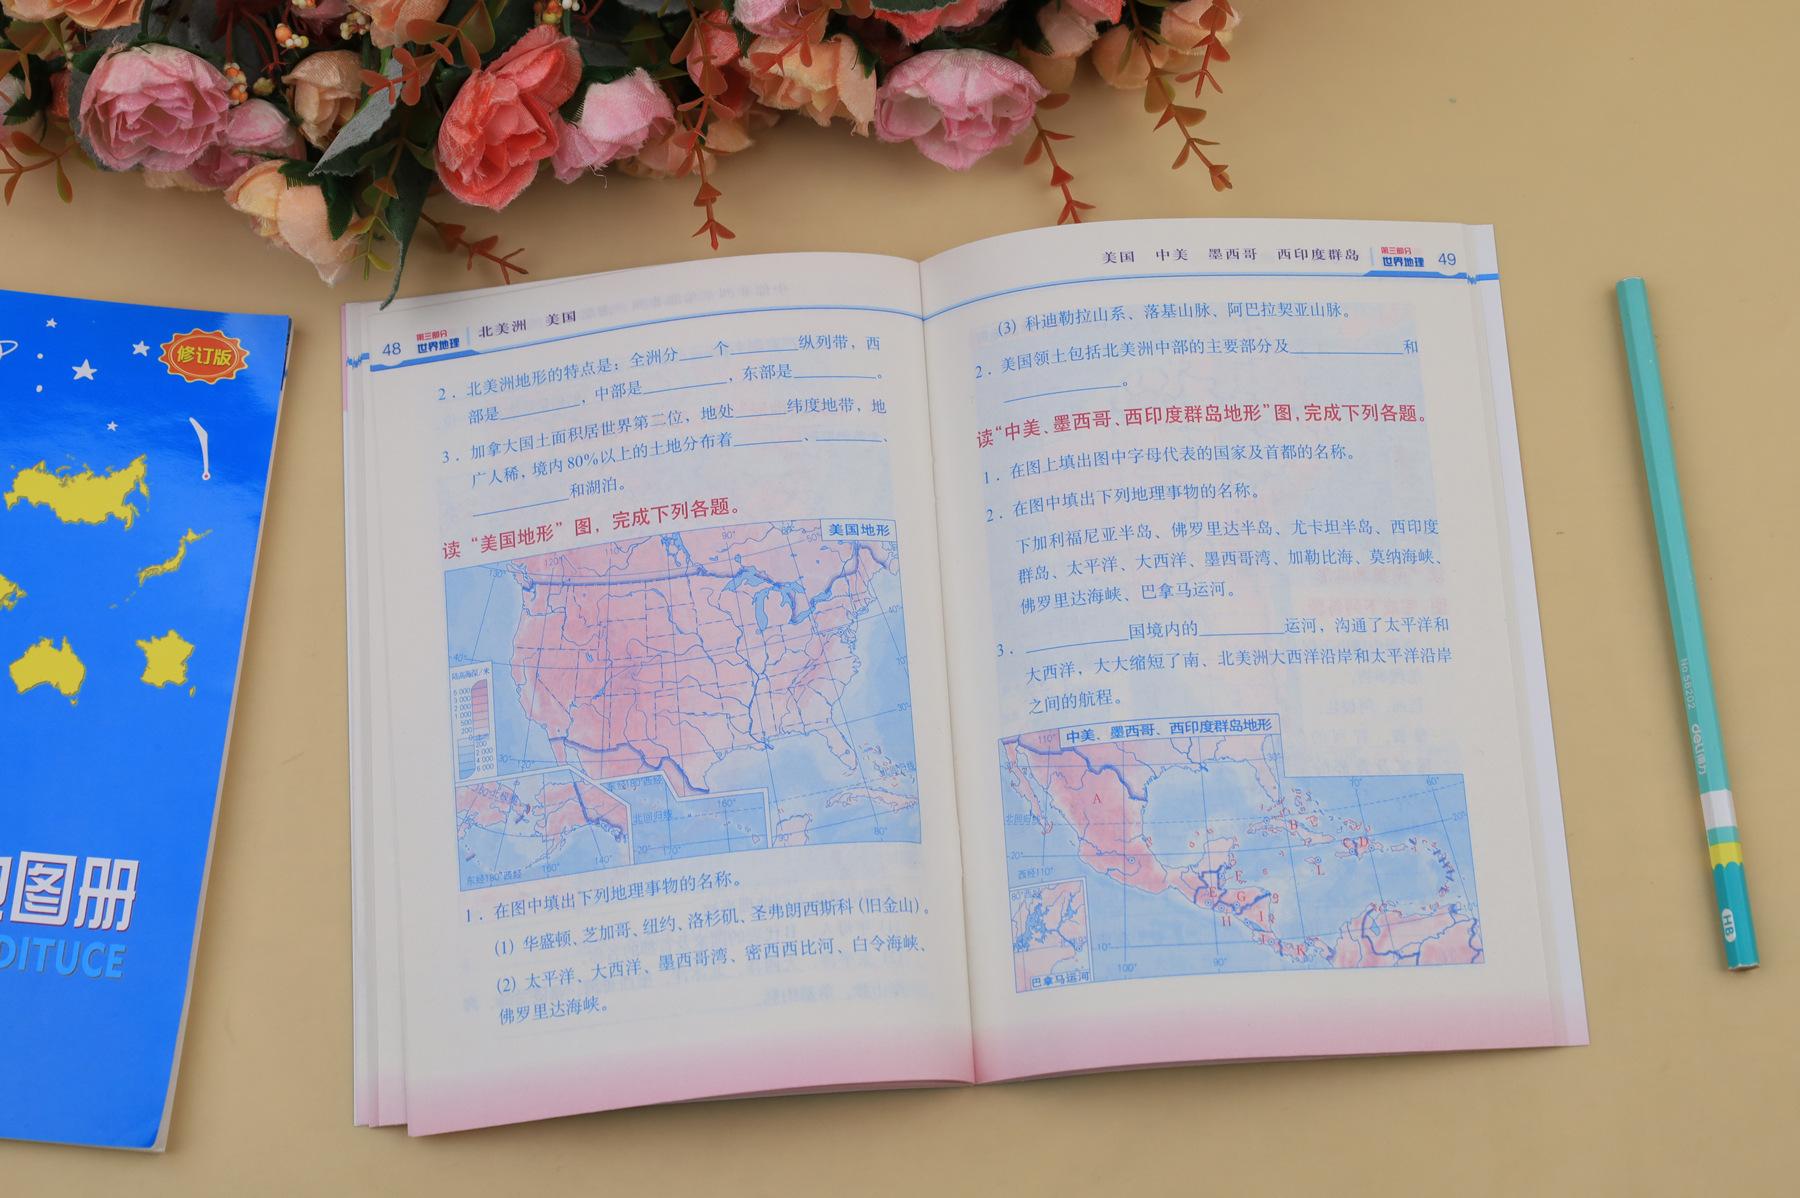 修订版
图册
DITUCE
48
第三部分
世界地理
北美洲 美国
2．北美洲地形的特点是：全洲分____个________纵列带，西
部是__________，中部是__________，东部是__________。
3．加拿大国土面积居世界第二位，地处______纬度地带，地
广人稀，境内80%以上的土地分布着________、________、
__________和湖泊。
读“美国地形”图，完成下列各题。
美国地形
130°
120°
110°
90°
40°
40°
70°
30°
30°
120°
陆高海深/米
5 000
3 000
2 000
1 000
500
200
0
200
2 000
4 000
6 000
北极圈
东经180°西经
160°
140°
东经180°西经
160°
北回归线
20°
170°
90°
80°
北回归线
1．在图中填出下列地理事物的名称。
(1) 华盛顿、芝加哥、纽约、洛杉矶、圣弗朗西斯科（旧金山）。
(2) 太平洋、大西洋、墨西哥湾、密西西比河、白令海峡、
佛罗里达海峡。
美国 中美 墨西哥 西印度群岛
第三部分
世界地理
49
(3) 科迪勒拉山系、落基山脉、阿巴拉契亚山脉。
2．美国领土包括北美洲中部的主要部分及______________和
______________。
读“中美、墨西哥、西印度群岛地形”图，完成下列各题。
1．在图上填出图中字母代表的国家及首都的名称。
2．在图中填出下列地理事物的名称。
下加利福尼亚半岛、佛罗里达半岛、尤卡坦半岛、西印度
群岛、太平洋、大西洋、墨西哥湾、加勒比海、莫纳海峡、
佛罗里达海峡、巴拿马运河。
3．____________国境内的__________运河，沟通了太平洋和
大西洋，大大缩短了南、北美洲大西洋沿岸和太平洋沿岸
之间的航程。
中美、墨西哥、西印度群岛地形
110°
30°
70°
60°
A
北回归线
B
20°
C D
20°
L
西经110°
F
E
G
H
I
J
K
10°
100°
90°
巴拿马运河
No.58202
deli得力
HB